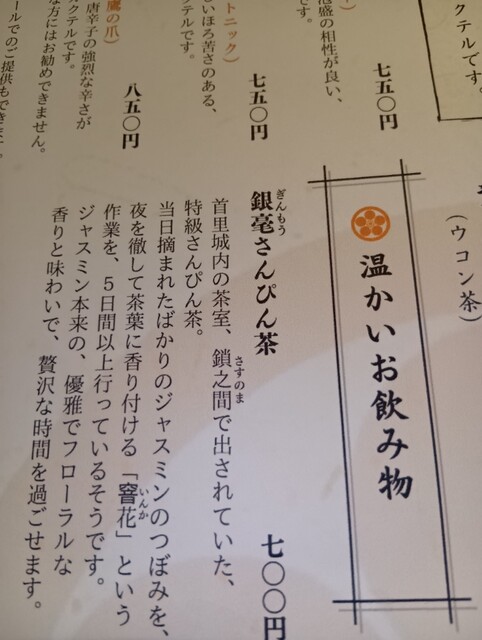 クテルです。
）
泡盛の相性が良い、
七五〇円
トニック）
いほろ苦さのある、
クテルです。
七五〇円
鷹の爪）
唐辛子の強烈な辛さが
クテルです。
な方にはお勧めできません。
ールでのご提供もできます。
八五〇円
（ウコン茶）
温かいお飲み物
銀毫さんぴん茶
ぎんもう
七〇〇円
首里城内の茶室、鎖之間で出されていた、
さすのま
特級さんぴん茶。
当日摘まれたばかりのジャスミンのつぼみを、
夜を徹して茶葉に香り付ける「窨花」という
いんか
作業を、5日間以上行っているそうです。
ジャスミン本来の、優雅でフローラルな
香りと味わいで、贅沢な時間を過ごせます。